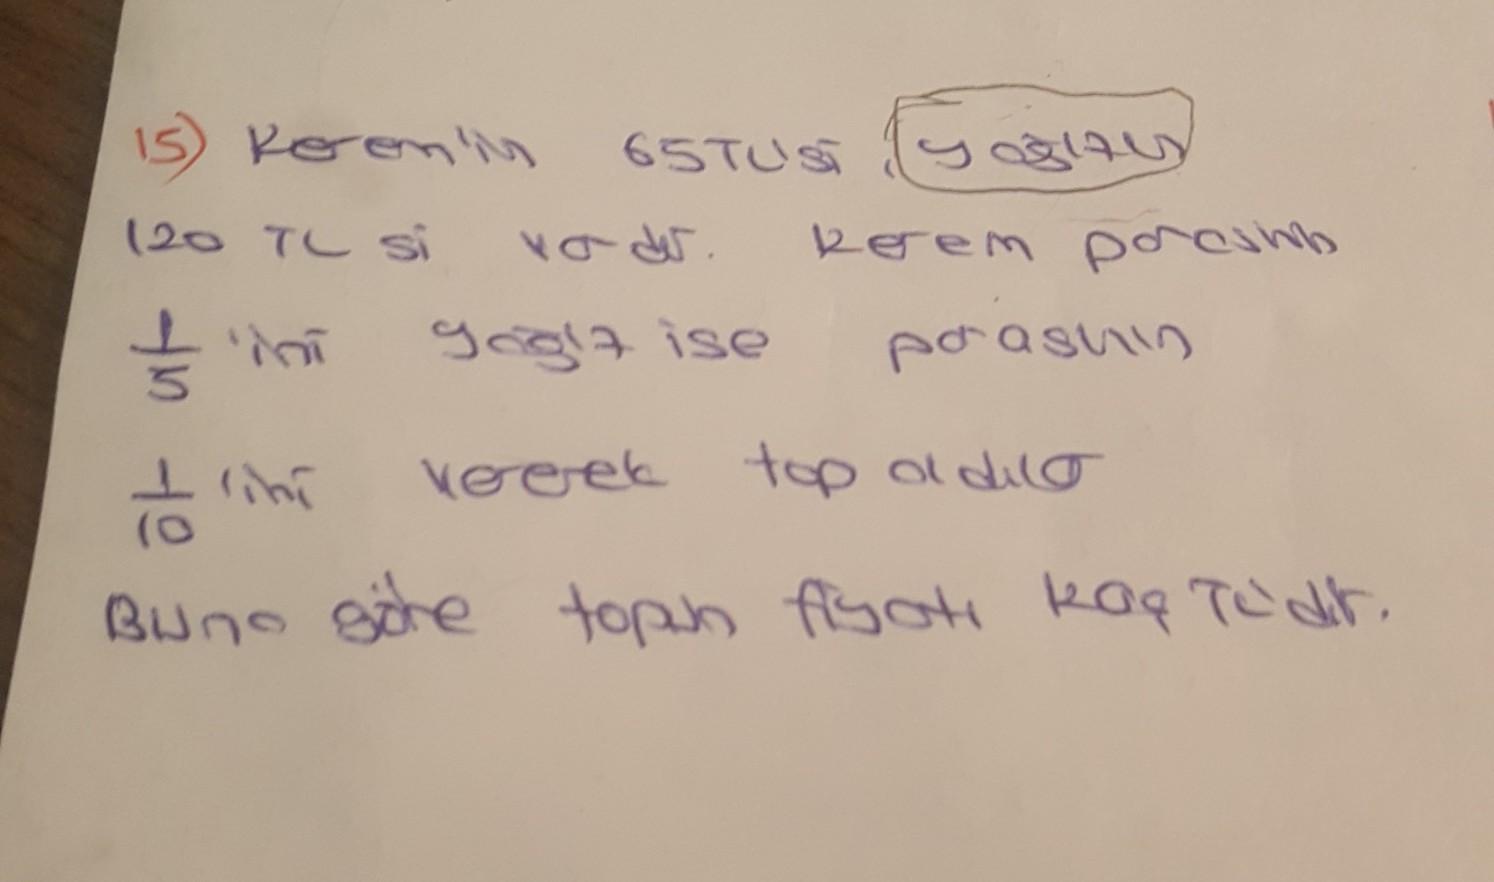 15) Kerem'in 65TL'si, Yağız'ın
120 TL si vardır. Kerem parasının
1/5 'ini Yağız ise parasının
1/10 'ini vererek top aldılar
Buna göre topun fiyatı kaç TL'dir.